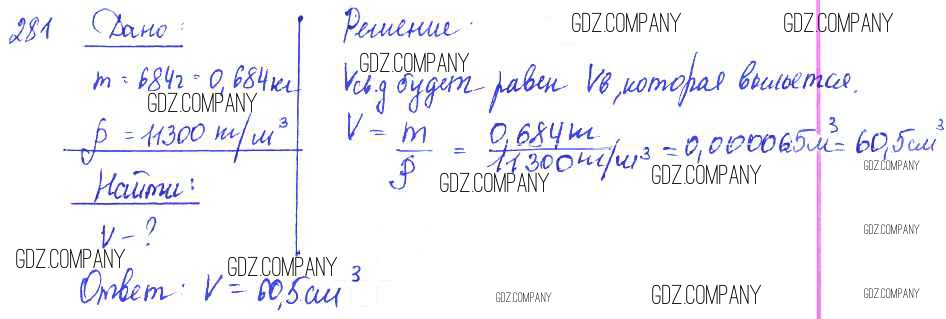 281 Дано:
m = 684г = 0,684кг
ρ = 11300 кг/м³
Найти:
V - ?
Решение:
Vсв.д будет равен Vв, которая выльется.
V = m/ρ = 0,684кг / 11300кг/м³ = 0,0000605м³ = 60,5см³
Ответ: V = 60,5см³
GDZ.COMPANY
GDZ.COMPANY
GDZ.COMPANY
GDZ.COMPANY
GDZ.COMPANY
GDZ.COMPANY
GDZ.COMPANY
GDZ.COMPANY
GDZ.COMPANY
GDZ.COMPANY
GDZ.COMPANY
GDZ.COMPANY
GDZ.COMPANY
GDZ.COMPANY